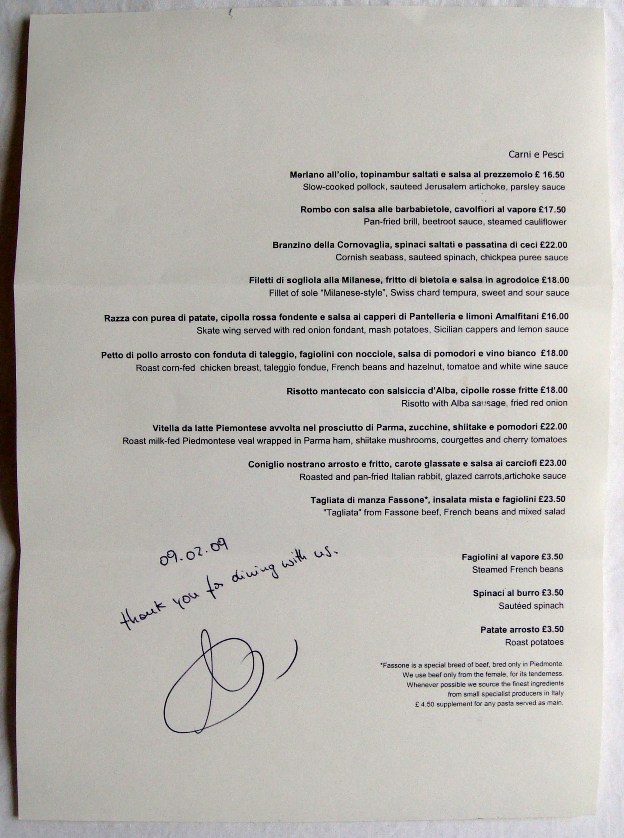 Carni e Pesci
Merlano all'olio, topinambur saltati e salsa al prezzemolo £ 16.50
Slow-cooked pollock, sauteed Jerusalem artichoke, parsley sauce
Rombo con salsa alle barbabietole, cavolfiori al vapore £17.50
Pan-fried brill, beetroot sauce, steamed cauliflower
Branzino della Cornovaglia, spinaci saltati e passatina di ceci £22.00
Cornish seabass, sauteed spinach, chickpea puree sauce
Filetti di sogliola alla Milanese, fritto di bietola e salsa in agrodolce £18.00
Fillet of sole "Milanese-style", Swiss chard tempura, sweet and sour sauce
Razza con purea di patate, cipolla rossa fondente e salsa ai capperi di Pantelleria e limoni Amalfitani £16.00
Skate wing served with red onion fondant, mash potatoes, Sicilian cappers and lemon sauce
Petto di pollo arrosto con fonduta di taleggio, fagiolini con nocciole, salsa di pomodori e vino bianco £18.00
Roast corn-fed chicken breast, taleggio fondue, French beans and hazelnut, tomatoe and white wine sauce
Risotto mantecato con salsiccia d'Alba, cipolle rosse fritte £18.00
Risotto with Alba sausage, fried red onion
Vitella da latte Piemontese avvolta nel prosciutto di Parma, zucchine, shiitake e pomodori £22.00
Roast milk-fed Piedmontese veal wrapped in Parma ham, shiitake mushrooms, courgettes and cherry tomatoes
Coniglio nostrano arrosto e fritto, carote glassate e salsa ai carciofi £23.00
Roasted and pan-fried Italian rabbit, glazed carrots,artichoke sauce
Tagliata di manza Fassone*, insalata mista e fagiolini £23.50
"Tagliata" from Fassone beef, French beans and mixed salad
Fagiolini al vapore £3.50
Steamed French beans
Spinaci al burro £3.50
Sautéed spinach
Patate arrosto £3.50
Roast potatoes
*Fassone is a special breed of beef, bred only in Piedmonte.
We use beef only from the female, for its tenderness.
Whenever possible we source the finest ingredients
from small specialist producers in Italy
£ 4.50 supplement for any pasta served as main.
09.02.09
thank you for dining with us.